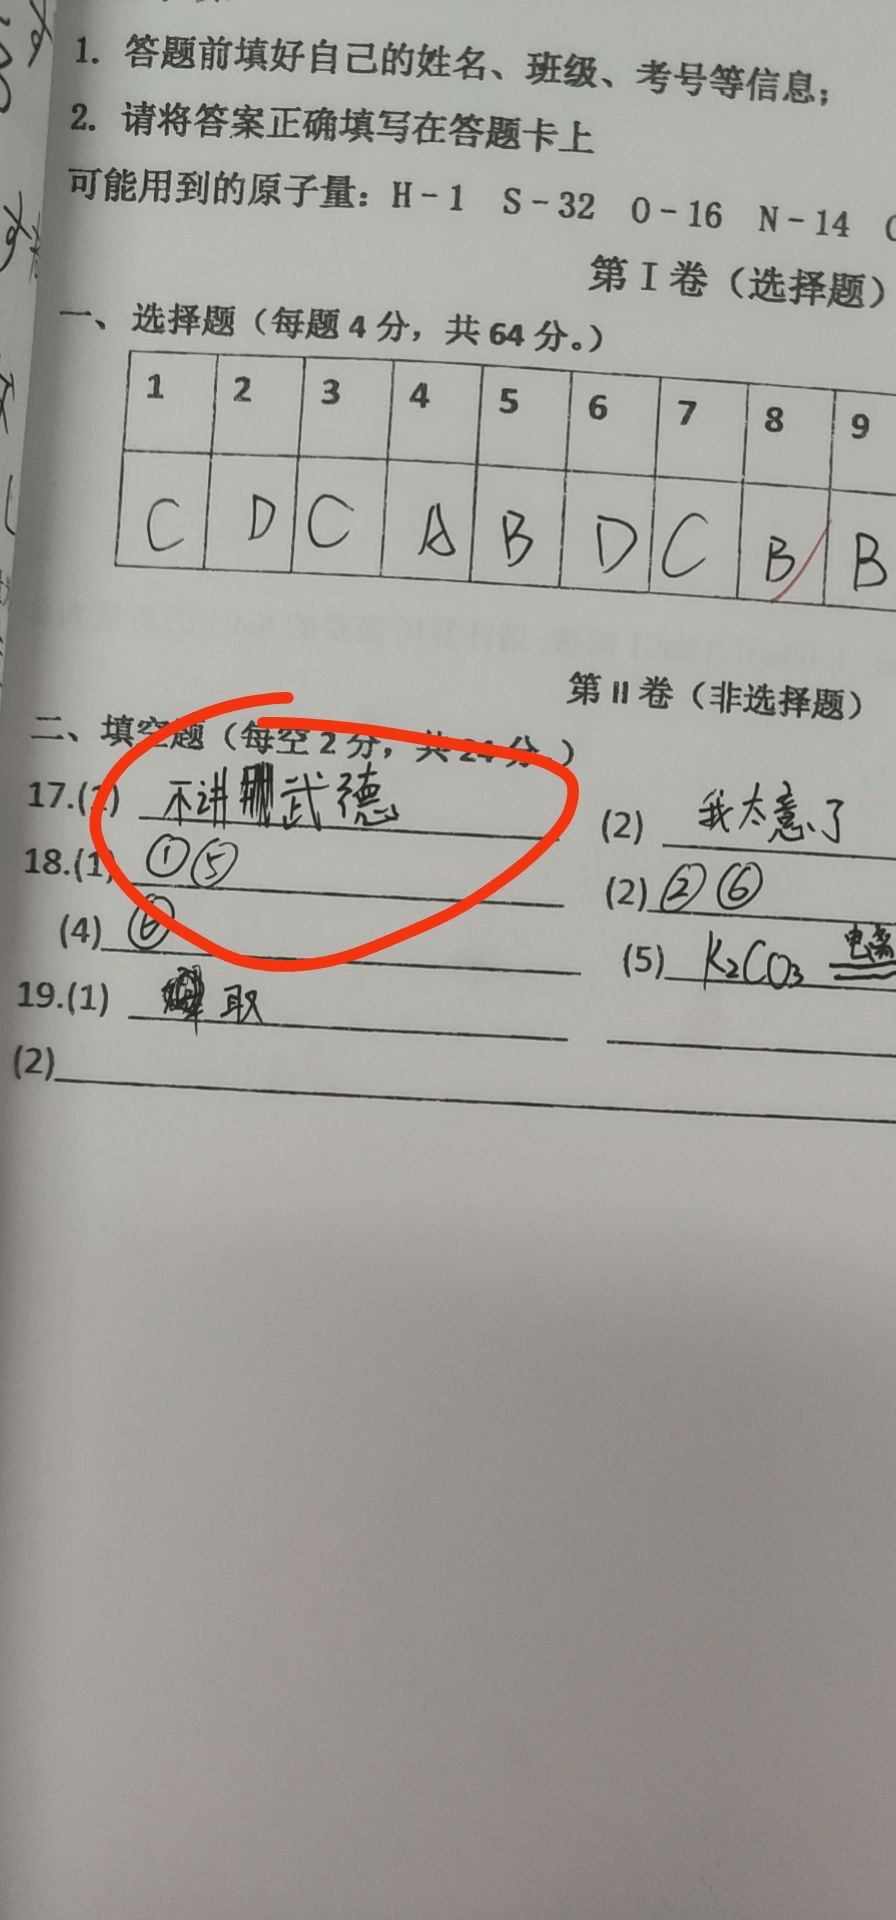 1. 答题前填好自己的姓名、班级、考号等信息；
2. 请将答案正确填写在答题卡上
可能用到的原子量：H-1 S-32 O-16 N-14
第Ⅰ卷（选择题）
一、选择题（每题4分，共64分。）
1 2 3 4 5 6 7 8 9
C D C A B D C B B
第Ⅱ卷（非选择题）
二、填空题（每空2分，共24分。）
17.(1) 不讲武德 (2) 我太意了
18.(1) ①⑤ (2) ②⑥
(4) (5) K₂CO₃ 电离
19.(1) 取
(2)